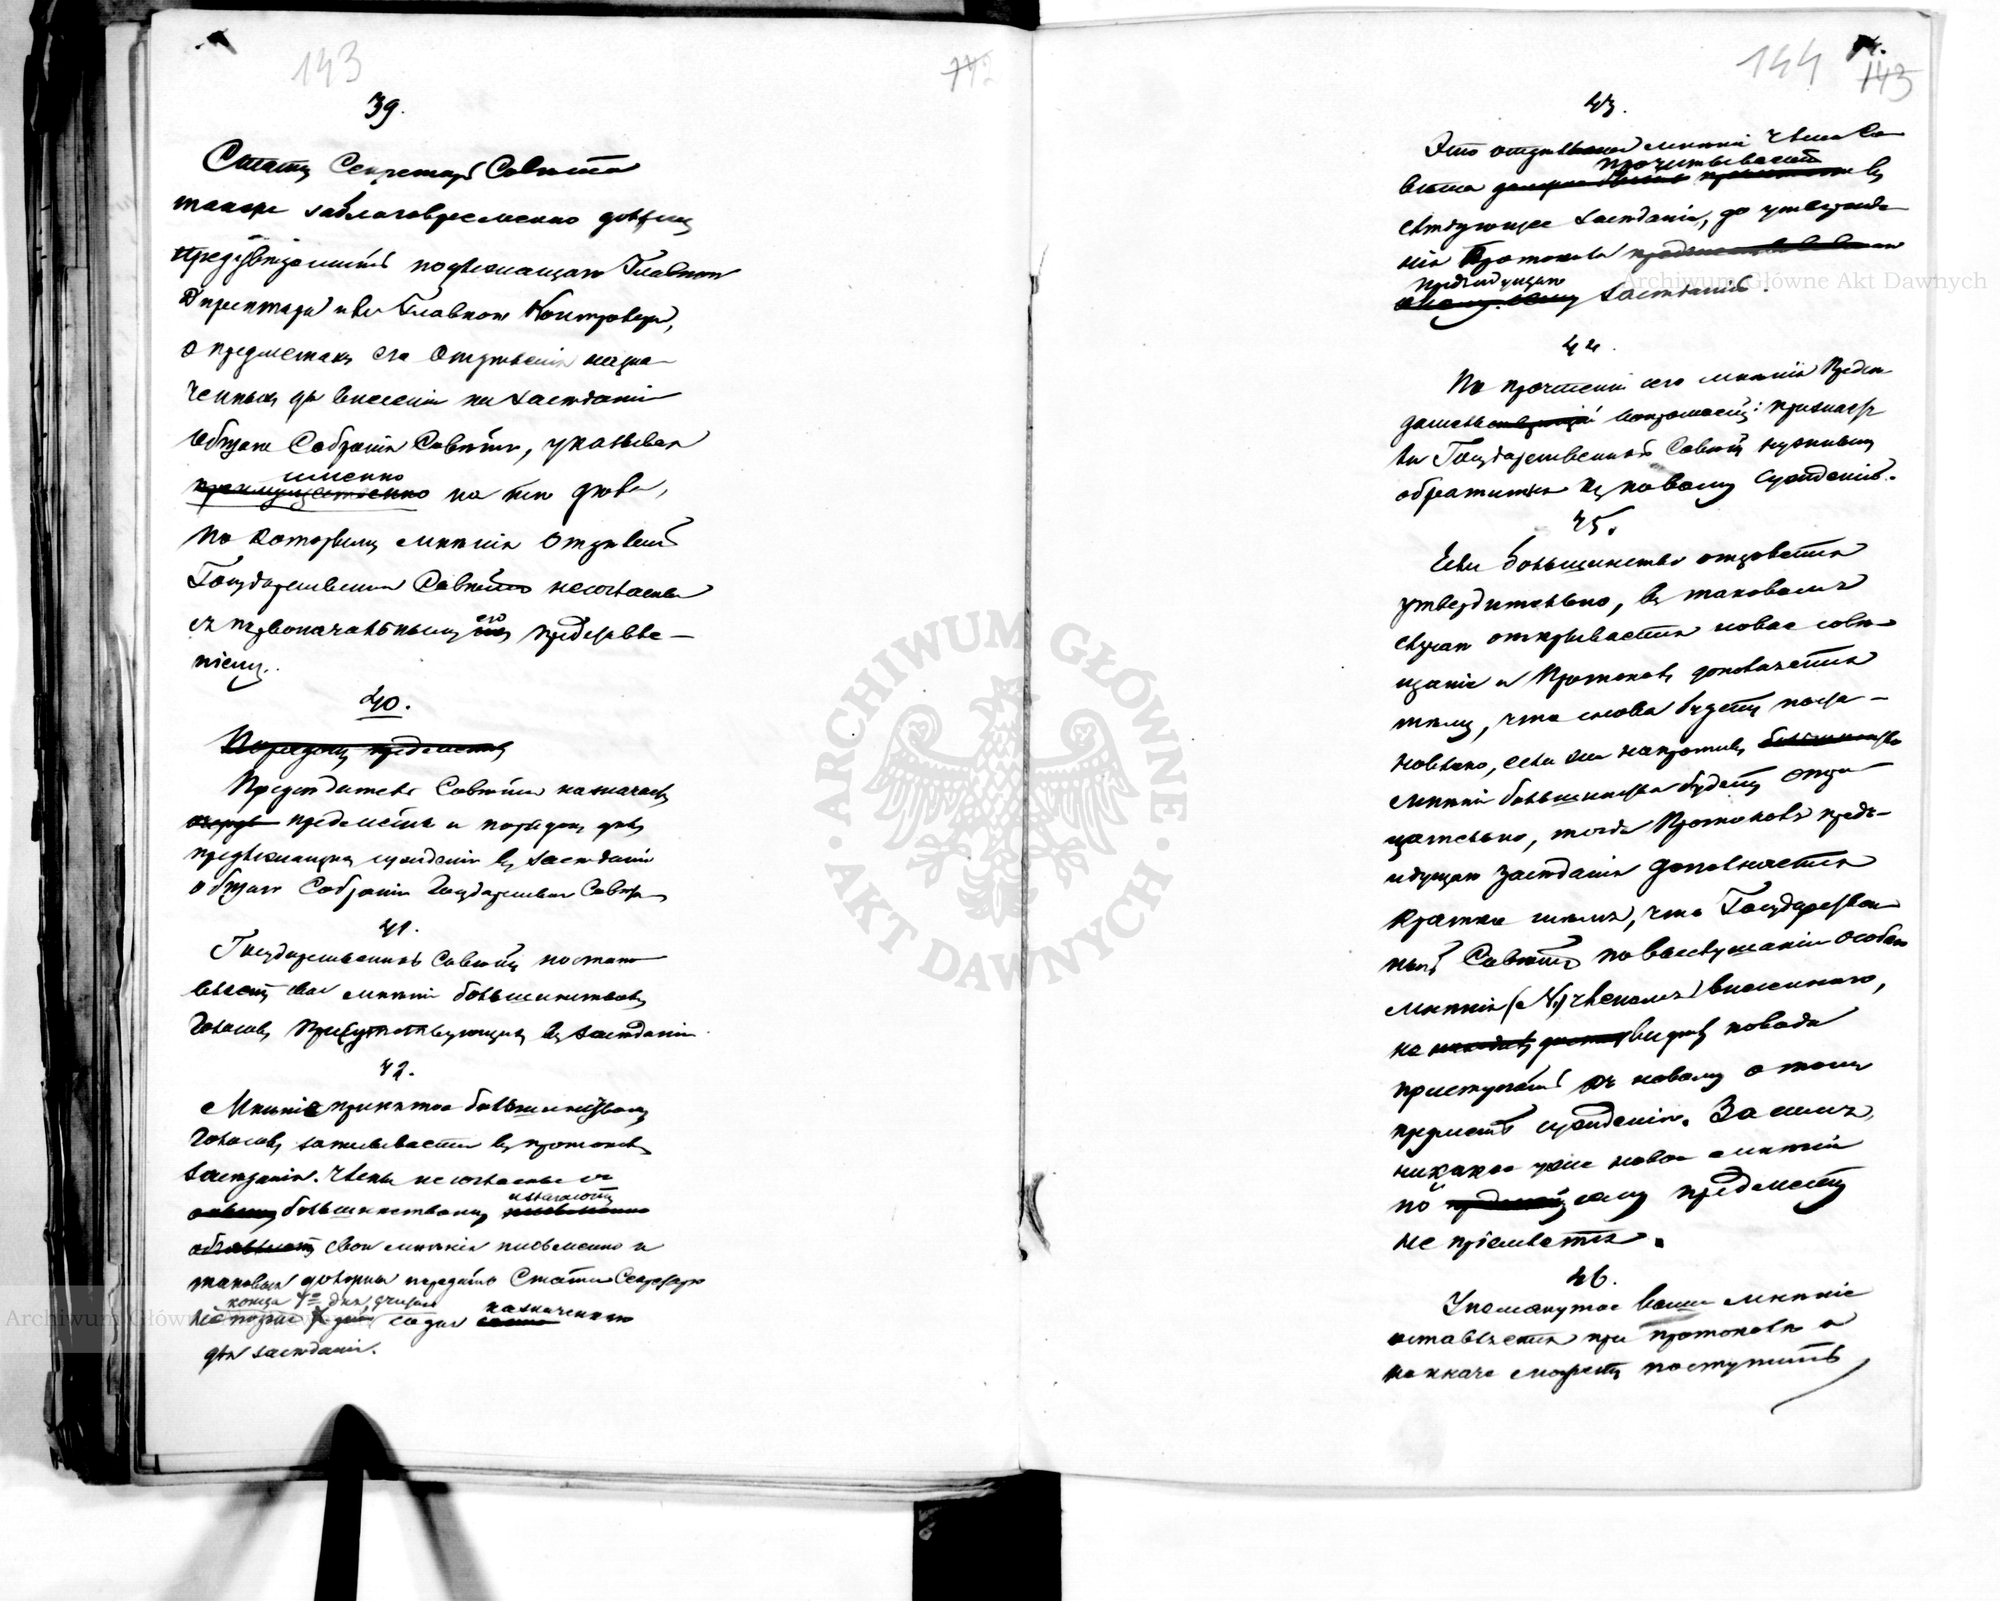 143
142
39.
Статсъ Секретарь Совѣта
также заблаговременно долженъ
предувѣдомить подлежащаго Главнаго
Директора или Главнаго Контролера,
о предметахъ его Отдѣленія назна-
ченныхъ для внесенія на засѣданіе
общаго Собранія Совѣта, указывая
именно
преимущественно на тѣ дѣла,
по которымъ мнѣнія Отдѣленій
Государственнаго Совѣта несогласны
съ первоначальнымъ его представле-
ніемъ.
40.
Порядокъ предметовъ
Предсѣдатель Совѣта назначаетъ
очередь предметы и порядокъ дѣлъ
предлежащихъ сужденію въ засѣданіи
общаго Собранія Государственнаго Совѣта
41.
Государственный Совѣтъ постано-
вляетъ свое мнѣніе большинствомъ
голосовъ присутствующихъ въ засѣданіи.
42.
Мнѣніе принятое большинствомъ
голосовъ записывается въ протоколъ
засѣданія. Члены не согласные съ
излагаютъ
большинствомъ письменно
объявляютъ свои мнѣнія письменно и
таковыя должны передать Статсъ Секретарю
конца дня,
не позже со дня назначеннаго
для засѣданія.
144
143
43.
Это отдѣльное мнѣніе Члена Со-
прочитывается
вѣта въ
слѣдующее засѣданіе, до утвержде-
нія Протокола
предъидущаго
засѣданія.
44.
По прочтеніи сего мнѣнія Предсѣ-
датель вопрошаетъ: признаетъ
ли Государственный Совѣтъ нужнымъ
обратиться къ новому сужденію.
45.
Если большинство отзовется
утвердительно, въ таковомъ
случаѣ открывается новое совѣ-
щаніе и Протоколъ дополняется
тѣмъ, что снова будетъ поста-
новлено, если же напротивъ большинство
мнѣніе большинства будетъ отри-
цательно, тогда Протоколъ предъ-
идущаго засѣданія дополняется
кратко тѣмъ, что Государствен-
ный Совѣтъ по выслушаніи особаго
мнѣнія (N.) Членомъ внесеннаго,
не находитъ видитъ повода
приступать къ новому о томъ
предметѣ сужденію. За симъ,
никакое уже новое мнѣніе
по сему предмету
не пріемлется.
46.
Упомянутое выше мнѣніе
оставляется при протоколѣ и
не иначе можетъ поступить
Archiwum Główne Akt Dawnych
ARCHIWUM GŁÓWNE
AKT DAWNYCH